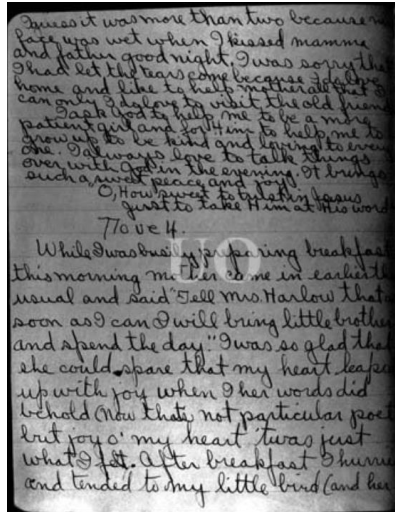 I guess it was more than two because m
face was wet when I kissed mamma
and father good night. I was sorry tha
I had let the tears come because I do love
home and like to help mother all that I
can only I do love to visit the old friend
I ask God to help me to be a more
patient girl and for Him to help me to
grow up to be kind and loving to every
one. I always love to talk things
over with God in the evening. It brings
such a sweet peace and joy.
O, How sweet to trust in Jesus
Just to take Him at His word
Nov 4.
While I was busily preparing breakfast
this morning mother came in earlier th
usual and said "Tell Mrs. Harlow that a
soon as I can I will bring little brother
and spend the day." I was so glad that
she could spare that my heart leaps
up with joy when I her words did
behold (Now thats not particular poet
but joy o' my heart 'twas just
what I felt. After breakfast I hurrie
and tended to my little bird (and her
UO